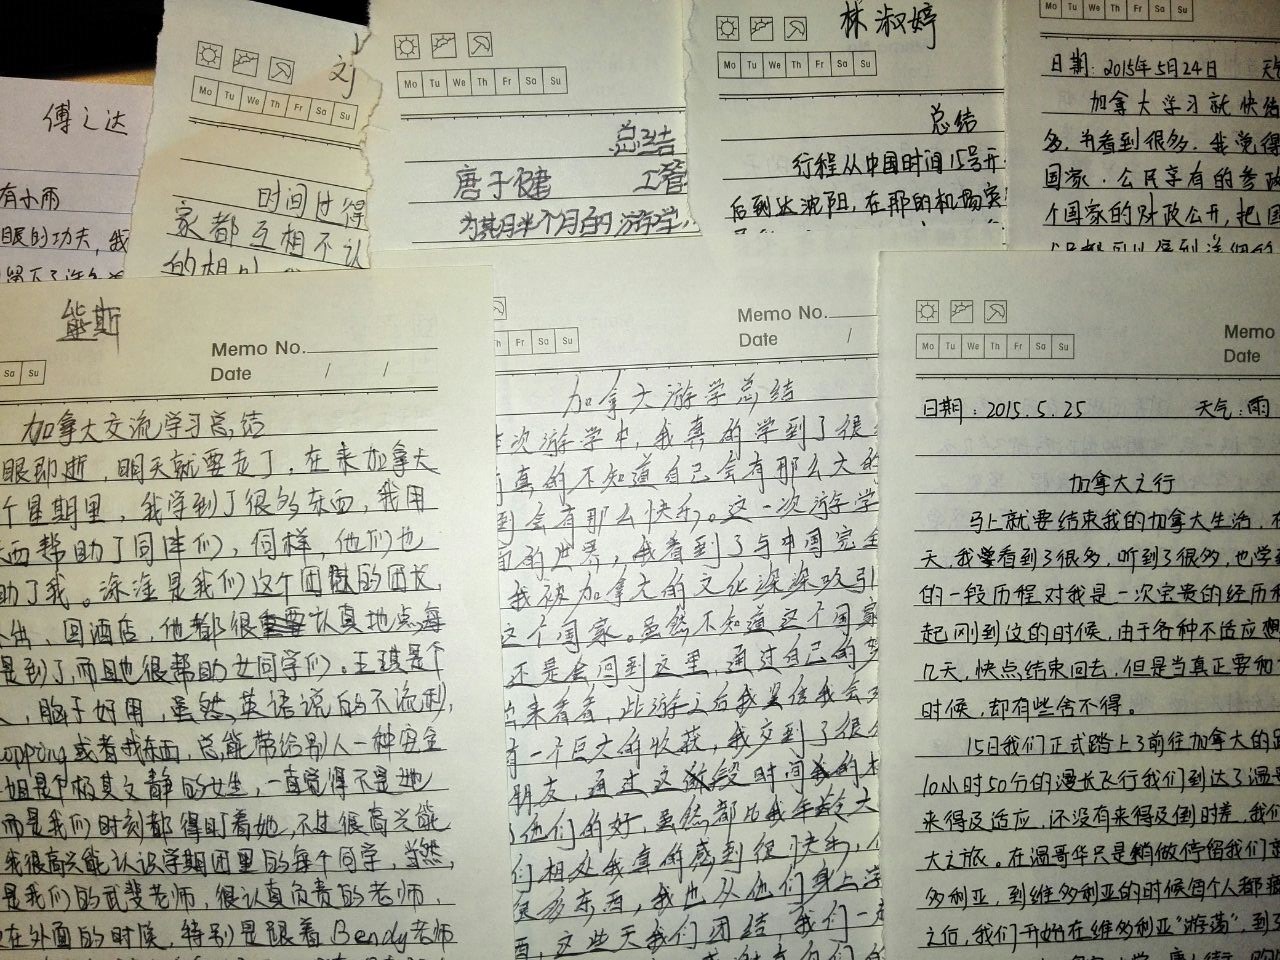 傅之达
有小雨
眼的功夫,我
刘
Mo Tu We Th Fr Sa Su
时间过得
家都互相不认
的相
Mo Tu We Th Fr Sa Su
总结
唐子健
为期半个月的游学,
林淑婷
Mo Tu We Th Fr Sa Su
总结
行程从中国时间15号开
后到达沈阳,在那的机场
Mo Tu We Th Fr Sa Su
日期:2015年5月24日
加拿大学习就快结
多,书看到很多,我觉得
国家.公民享有的参政
个国家的财政公开,把国
熊斯
Sa Su
Memo No.
Date / /
加拿大交流学习总结
眼即逝,明天就要走了,在来加拿大
个星期里,我学到了很多东西,我用
西帮助了同伴们,同样,他们也
助了我。涂淦是我们这个团队的团长,
出,回酒店,他都很认真地点每
是到了,而且也很帮助女同学们。王琪是个
,脑子好用,虽然英语说的不流利,
opping或者找东西,总能带给别人一种安全
姐是个极其文静的女生,一直觉得不是她
而是我们时刻都得盯着她,不过很高兴能
我很高兴能认识学期团里的每个同学,当然,
是我们的武斐老师,很认真负责的老师,
在外面的时候,特别是跟着Bendy老师
Fr Sa Su
Memo No.
Date /
加拿大游学总结
次游学中,我真的学到了很
真的不知道自己会有那么大的
到会有那么快乐。这一次游学
的世界,我看到了与中国完全
我被加拿大的文化深深吸引
这个国家。虽然不知道这个国家
还是会回到这里,通过自己的努
来看看,此游之后我坚信我会
有一个巨大的收获,我交到了很
朋友,通过这段时间的相
他们的好,虽然都比我年龄大
们相处我真的感到很快乐,
很多东西,我也从他们身上学
,这些天我们团结,我们一起
Mo Tu We Th Fr Sa Su
Memo
Date
日期:2015.5.25 天气:雨
加拿大之行
马上就要结束我的加拿大生活,在
天,我看到了很多,听到了很多,也学到
的一段历程对我是一次宝贵的经历
起刚到这的时候,由于各种不适应想
几天,快点结束回去,但是当真正要和
时候,却有些舍不得。
15日我们正式踏上了前往加拿大的
10小时50分的漫长飞行我们到达了温哥
来得及适应,还没有来得及倒时差,我们
大之旅。在温哥华只是稍做停留我们
多利亚,到维多利亚的时候每个人都疲
之后,我们开始在维多利亚"游荡",到